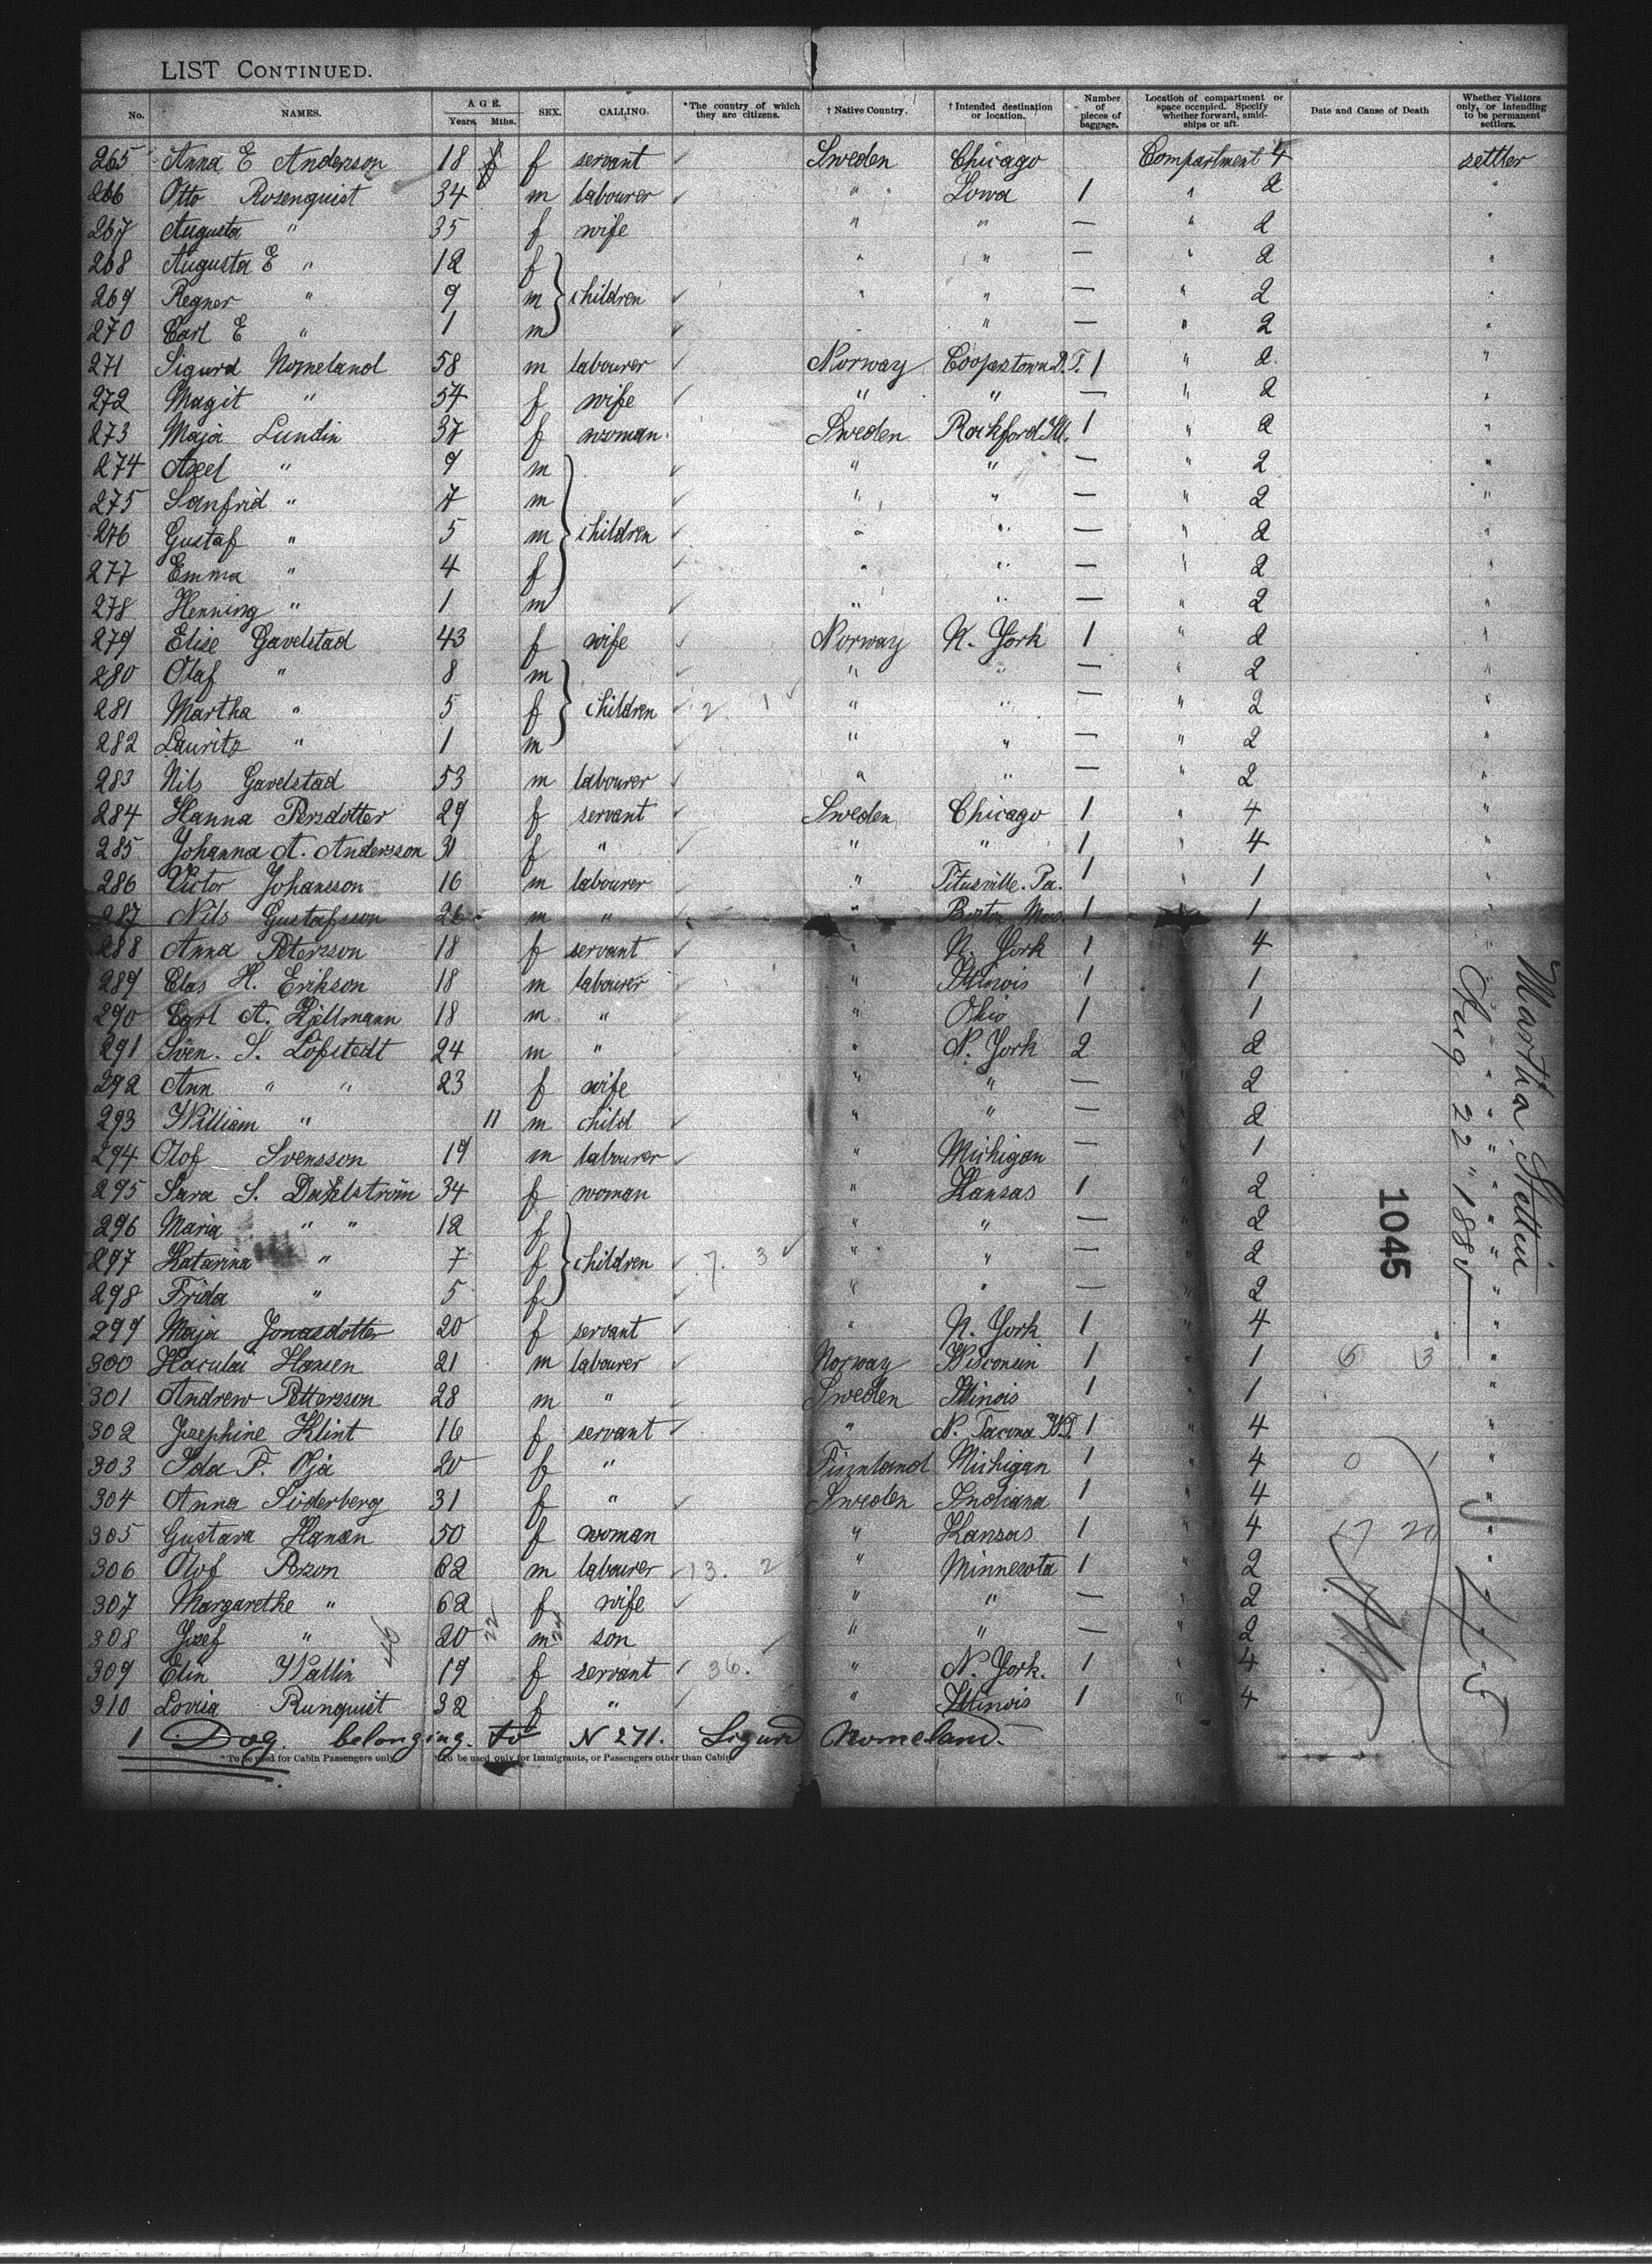 LIST CONTINUED.
No. NAMES. AGE. Years. Mths. SEX. CALLING. *The country of which they are citizens. † Native Country. † Intended destination or location. Number of pieces of baggage. Location of compartment or space occupied. Specify whether forward, amidships or aft. Date and Cause of Death Whether Visitors only, or intending to be permanent settlers.
265 Anna E Anderson 18 f servant Sweden Chicago Compartment 4 settler
266 Otto Rosenquist 34 m labourer " Iowa 1 " 2 "
267 Augusta " 35 f wife " " — " 2 "
268 Augusta E " 12 f " " — " 2 "
269 Regner " 9 m children " " — " 2 "
270 Carl E " 1 m " " — " 2 "
271 Sigurd Nomeland 58 m labourer Norway Cooperstown D.T. 1 " 2 "
272 Magit " 54 f wife " " — " 2 "
273 Maja Lundin 37 f woman. Sweden Rockford Ill. 1 " 2 "
274 Axel " 9 m " " — " 2 "
275 Sanfrid " 7 m " " — " 2 "
276 Gustaf " 5 m children " " — " 2 "
277 Emma " 4 f " " — " 2 "
278 Henning " 1 m " " — " 2 "
279 Elise Gavelstad 43 f wife Norway N. York 1 " 2 "
280 Olaf " 8 m " " — " 2 "
281 Martha " 5 f children 2. 1 " " — " 2 "
282 Lauritz " 1 m " " — " 2 "
283 Nils Gavelstad 53 m labourer " " — " 2 "
284 Hanna Persdotter 29 f servant Sweden Chicago 1 " 4 "
285 Johanna A. Andersson 31 f " " " 1 " 4 "
286 Victor Johansson 16 m labourer " Titusville. Pa. 1 " 1 "
287 Nils Gustafsson 26 m " " Boston Mas. 1 1 "
288 Anna Petersson 18 f servant " N. York 1 4 "
289 Clas H. Erikson 18 m labourer " Illinois 1 1 "
290 Carl A. Kjellmann 18 m " " Ohio 1 1 "
291 Sven. S. Löfstedt 24 m " " N. York 2 2 "
292 Ann " " 23 f wife " " — 2 "
293 William " 11 m child " " — 2 "
294 Olof Svensson 19 m labourer " Michigan — 1 "
295 Sara S. Dahlström 34 f woman " Kansas 1 2 "
296 Maria " " 12 f " " — 2 "
297 Katarina " 7 f children 7. 3 " " — 2 "
298 Frida " 5 f " " — 2 "
299 Maja Jonasdotter 20 f servant " N. York 1 " 4 "
300 Haculai Hansen 21 m labourer Norway Wisconsin 1 " 1 6 13 "
301 Andrew Pettersson 28 m " Sweden Illinois 1 " 1 "
302 Josephine Klint 16 f servant " N. Tacoma W.T. 1 " 4 "
303 Ida F. Oja 20 f " Finnland Michigan 1 " 4 0 1 "
304 Anna Söderberg 31 f " Sweden Indiana 1 " 4 "
305 Gustava Hansen 50 f woman " Kansas 1 " 4 "
306 Olof Person 62 m labourer 13. 2 " Minnesota 1 2 "
307 Margarethe " 62 f wife " " — 2
308 Josef " 20 m son " " — 2
309 Elin Wallin 19 f servant 36. " N. York. 1 " 4
310 Lovisa Runquist 32 f " " Illinois 1 " 4
1 Dog. belonging. to N 271. Sigurd Nomeland.
* To be used for Cabin Passengers only. † To be used only for Immigrants, or Passengers other than Cabin.
Martha. Stettin
Aug 22 " 188
1045